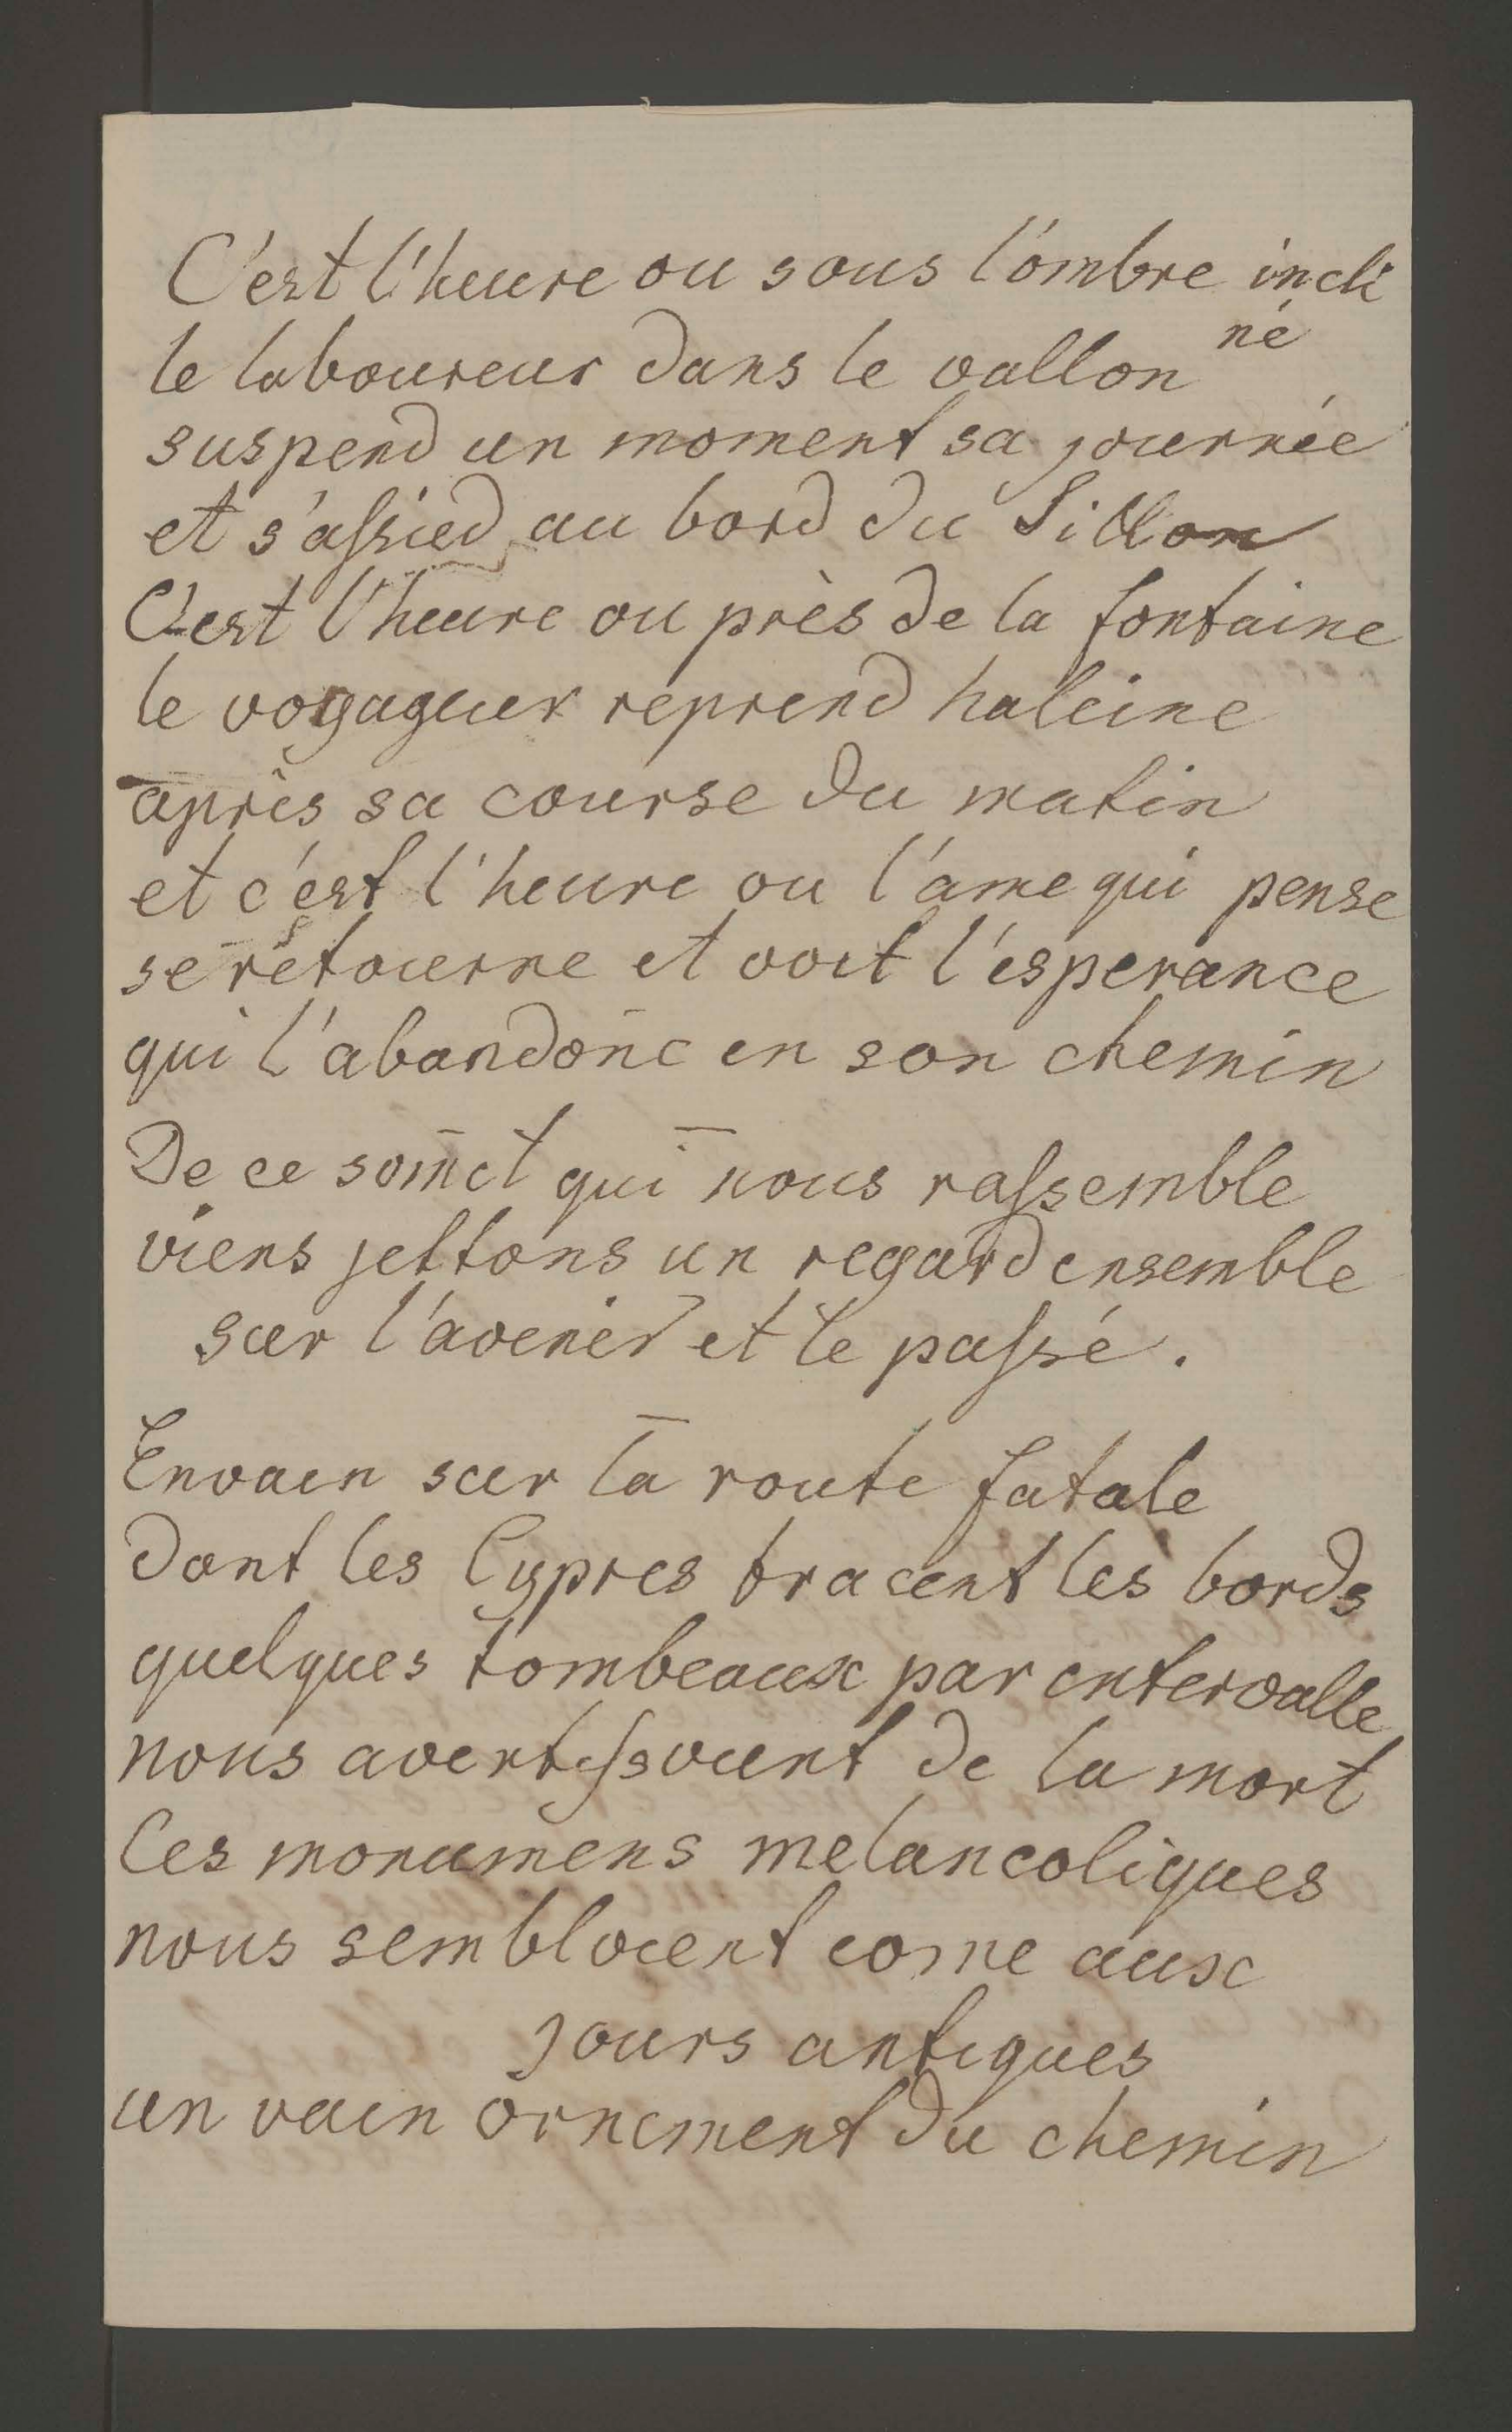 C'est l'heure ou sous l'ombre incli
né
le laboureur dans le vallon
suspend un moment sa journée
et s'assied au bord du Sillon
C'est l'heure ou près de la fontaine
le voyageur reprend haleine
après sa course du matin
et c'est l'heure ou l'ame qui pense
se retourne et voit l'esperance
qui l'abandone en son chemin
De ce som̄et qui nous rassemble
viens jettons un regard ensemble
sur l'avenir et le passé.
Envain sur la route fatale
dont les Cypres tracent les bords
quelques tombeaux par intervalle
nous avertissoient de la mort
Ces monumens melancoliques
nous sembloient come aux
jours antiques
un vain ornement du chemin